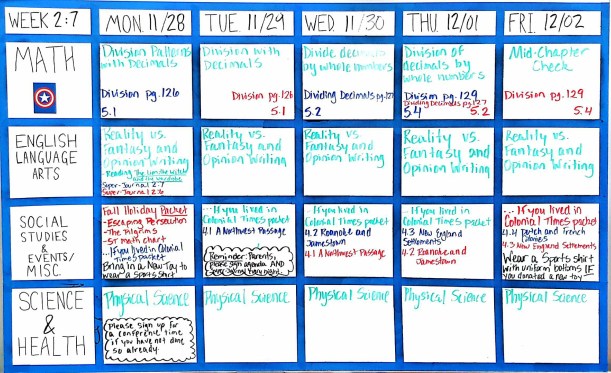 WEEK 2:7
MON. 11/28
TUE. 11/29
WED. 11/30
THU. 12/01
FRI. 12/02
MATH
Division Patterns
with Decimals
Division pg. 126
5.1
Division with
Decimals
Division pg. 126
5.1
Divide decimals
by whole numbers
Dividing Decimals pg. 127
5.2
Division of
decimals by
whole numbers
Division pg. 129
Dividing Decimals pg. 127
5.4
5.2
Mid-Chapter
Check
Division pg. 129
5.4
ENGLISH
LANGUAGE
ARTS
Reality vs.
Fantasy and
Opinion Writing
-Reading The Lion, the Witch
and the Wardrobe
Super-Journal 2.7
Super-Journal 2.6
Reality vs.
Fantasy and
Opinion Writing
Reality vs.
Fantasy and
Opinion Writing
Reality vs.
Fantasy and
Opinion Writing
Reality vs.
Fantasy and
Opinion Writing
SOCIAL
STUDIES
& EVENTS/
MISC.
Fall Holiday Packet
-Escaping Persecution
-The Pilgrims
-5r math chart
...If you lived in Colonial
Times packet
Bring in a New Toy to
wear a Sports Shirt
...If you lived in
Colonial Times packet
4.1 A Northwest Passage
Reminder: Parents,
please sign agenda AND
...If you lived in
Colonial Times packet
4.2 Roanoke and
Jamestown
4.1 A Northwest Passage
...If you lived in
Colonial Times packet
4.3 New England
Settlements
4.2 Roanoke and
Jamestown
...If you lived in
Colonial Times packet
4.4 Dutch and French
4.3 New England Settlements
Wear a Sports shirt
with uniform bottoms IF
you donated a new toy
SCIENCE
&
HEALTH
Physical Science
Please sign up for
a conference time
if you have not done
so already.
Physical Science
Physical Science
Physical Science
Physical Science